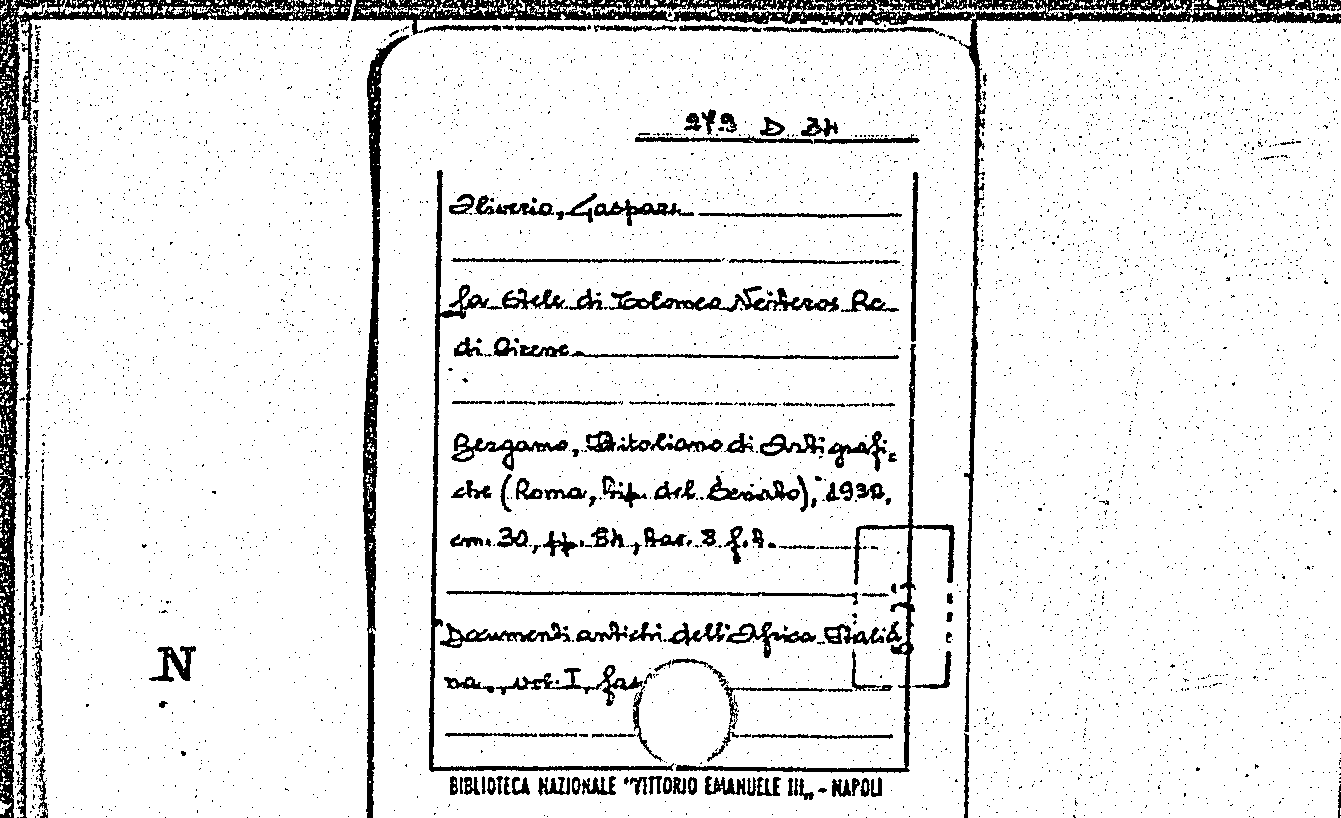 279 D 34
Oliverio, Gaspare
La Stele di Tolomeo Neóteros Re
di Cirene.
Bergamo, Ist. italiano di Arti grafi-
che (Roma, Tip. del Senato), 1932,
cm. 30, pp. 84, tav. 8 f.t.
Documenti antichi dell'Africa Italia
na., vol. I, fas
N
BIBLIOTECA NAZIONALE "VITTORIO EMANUELE III„ - NAPOLI